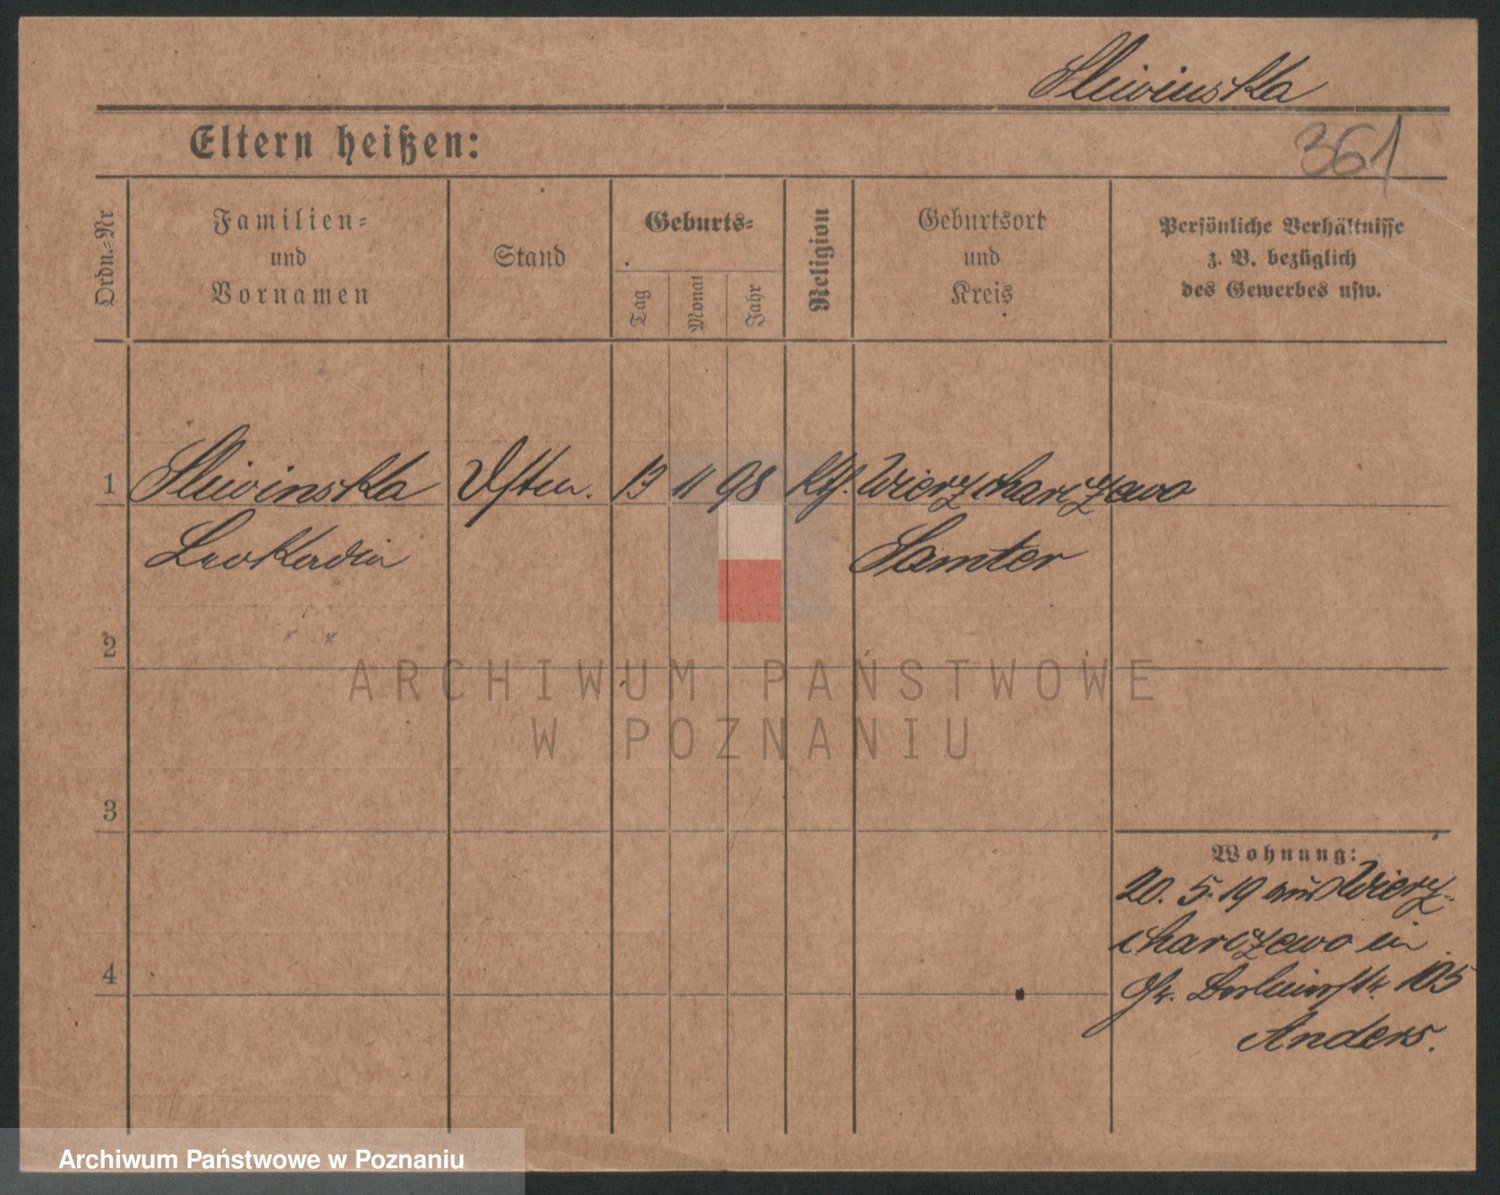 Sliwinska
Eltern heißen:
361
Ordn.=Nr
Familien=
und
Vornamen
Stand
Geburts=
Tag
Monat
Jahr
Religion
Geburtsort
und
Kreis
Persönliche Verhältnisse
z. B. bezüglich
des Gewerbes usw.
1 Sliwinska 13 11 98 Kth. Wierzcharczewo
Leokadia Samter
2
ARCHIWUM PAŃSTWOWE
W POZNANIU
3
Wohnung:
20. 5. 19 aus Wierz-
charczewo in
4
105
Anders.
Archiwum Państwowe w Poznaniu